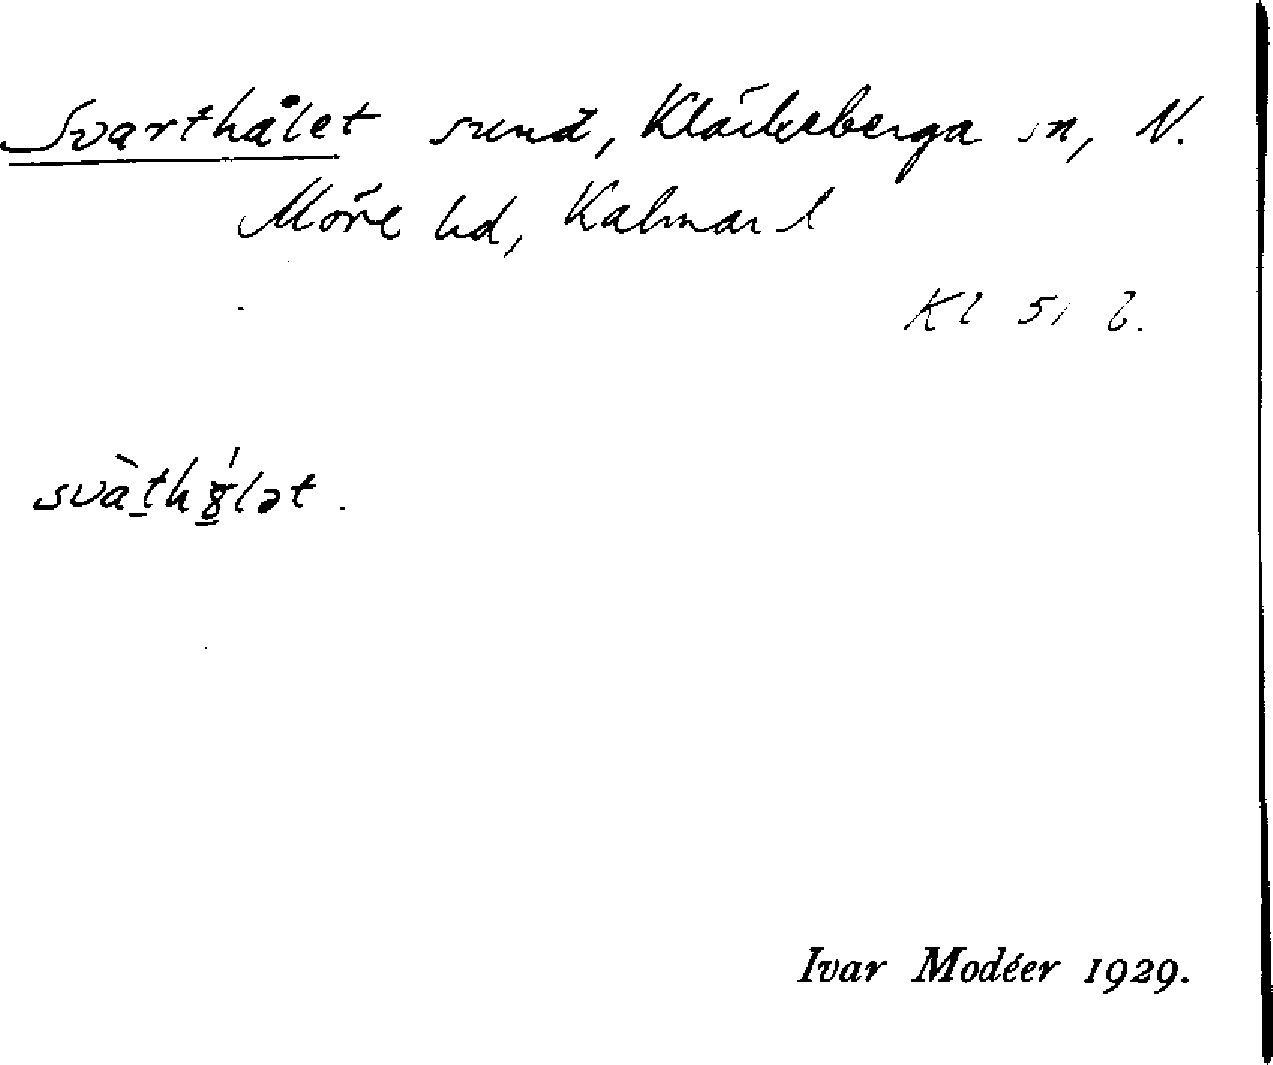 Svarthålet sund, Kläckeberga sn, N.
Möre hd, Kalmar l
Kl 51 b.
svàthɣ́lət.
Ivar Modéer 1929.